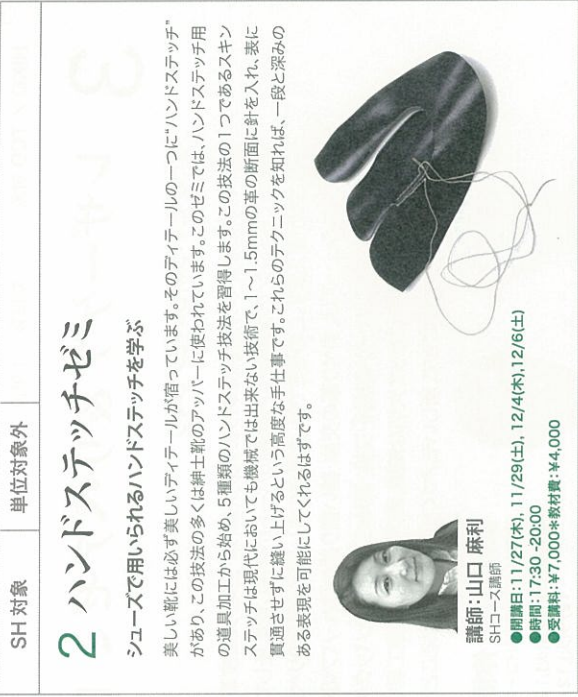 SH 対象
単位対象外
2 ハンドステッチゼミ
シューズで用いられるハンドステッチを学ぶ
美しい靴には必ず美しいディテールが宿っています。そのディテールの一つに"ハンドステッチ"
があり、この技法の多くは紳士靴のアッパーに使われています。このゼミでは、ハンドステッチ用
の道具加工から始め、5種類のハンドステッチ技法を習得します。この技法の1つであるスキン
ステッチは現代においても機械では出来ない技術で、1〜1.5mmの革の断面に針を入れ、表に
貫通させずに縫い上げるという高度な手仕事です。これらのテクニックを知れば、一段と深みの
ある表現を可能にしてくれるはずです。
講師:山口 麻利
SHコース講師
●開講日:11/27(木), 11/29(土), 12/4(木),12/6(土)
●時間:17:30 -20:00
●受講料:¥7,000*教材費:¥4,000